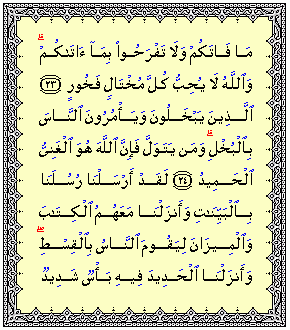 مَا فَاتَكُمْ وَلَا تَفْرَحُوا۟ بِمَآ ءَاتَىٰكُمْ ۗ
وَٱللَّهُ لَا يُحِبُّ كُلَّ مُخْتَالٍ فَخُورٍ ﴿٢٣﴾
ٱلَّذِينَ يَبْخَلُونَ وَيَأْمُرُونَ ٱلنَّاسَ
بِٱلْبُخْلِ ۗ وَمَن يَتَوَلَّ فَإِنَّ ٱللَّهَ هُوَ ٱلْغَنِىُّ
ٱلْحَمِيدُ ﴿٢٤﴾ لَقَدْ أَرْسَلْنَا رُسُلَنَا
بِٱلْبَيِّنَٰتِ وَأَنزَلْنَا مَعَهُمُ ٱلْكِتَٰبَ
وَٱلْمِيزَانَ لِيَقُومَ ٱلنَّاسُ بِٱلْقِسْطِ ۖ
وَأَنزَلْنَا ٱلْحَدِيدَ فِيهِ بَأْسٌ شَدِيدٌ